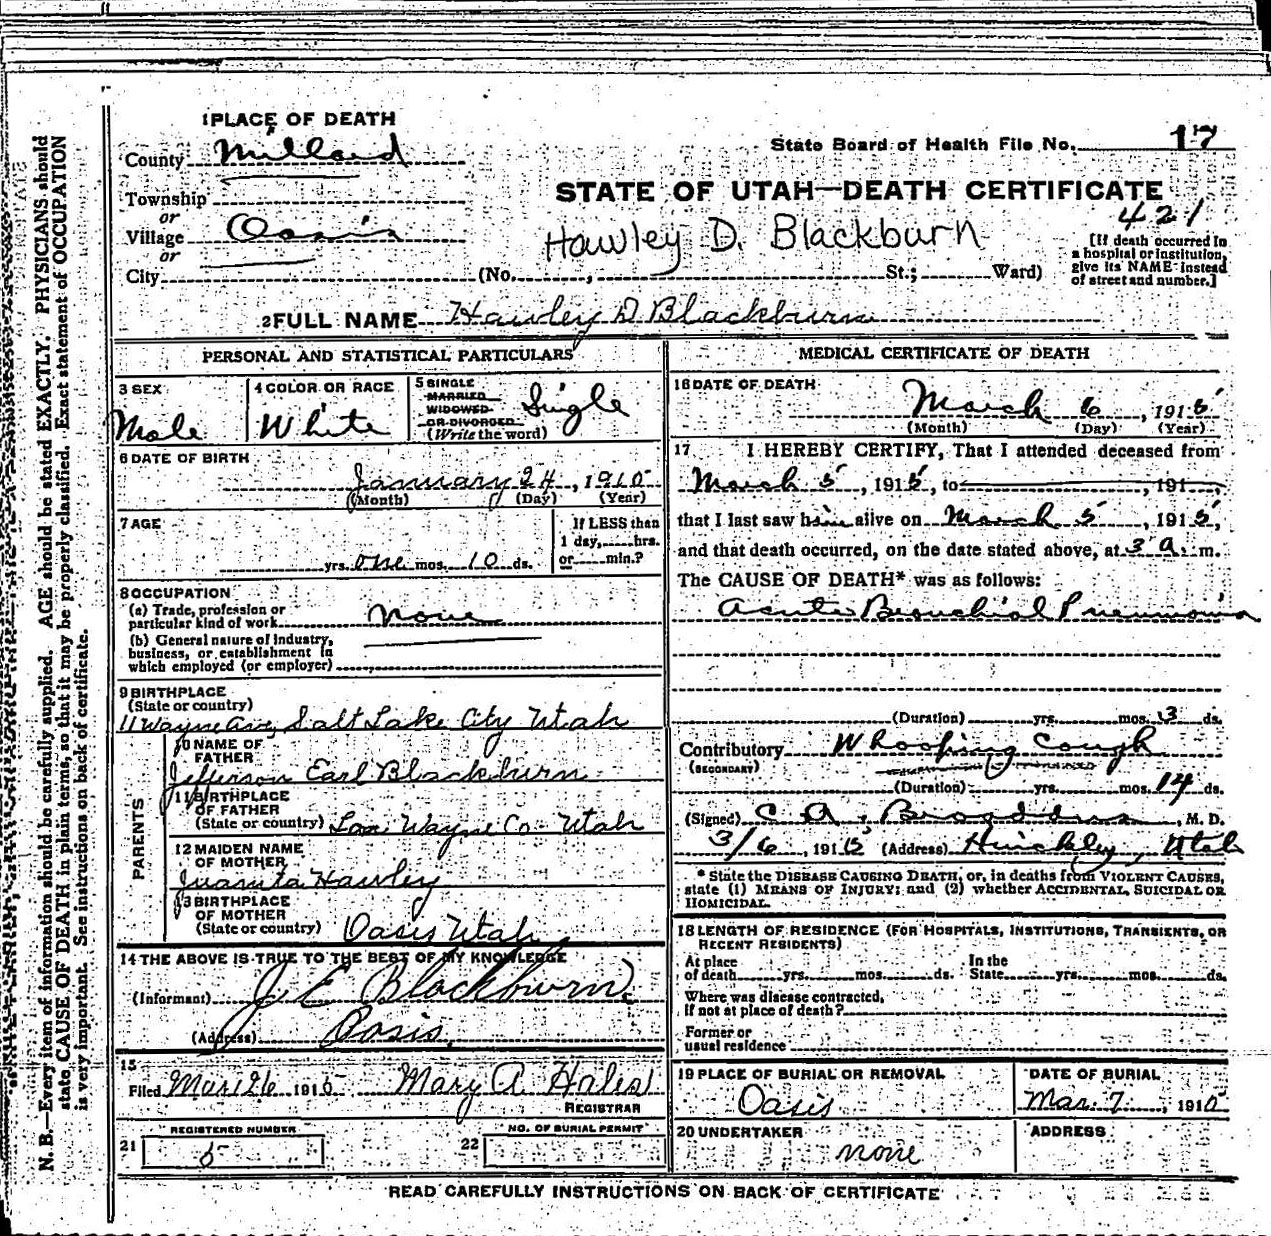 1 PLACE OF DEATH
County Millard
State Board of Health File No. 17
Township
or
Village Oasis
or
City
STATE OF UTAH—DEATH CERTIFICATE
421
Hawley D. Blackburn
(No. , St.; Ward)
[If death occurred in
a hospital or institution,
give its NAME instead
of street and number.]
2 FULL NAME Hawley D Blackburn
PERSONAL AND STATISTICAL PARTICULARS
3 SEX
Male
4 COLOR OR RACE
White
5 SINGLE
MARRIED
WIDOWED
OR DIVORCED
(Write the word)
Single
6 DATE OF BIRTH
January 24, 1915
(Month) (Day) (Year)
7 AGE
yrs. one mos. 10 ds.
If LESS than
1 day, hrs.
or min.?
8 OCCUPATION
(a) Trade, profession or
particular kind of work None
(b) General nature of industry,
business, or establishment in
which employed (or employer)
9 BIRTHPLACE
(State or country)
11 Wayne Ave, Salt Lake City Utah
PARENTS
10 NAME OF
FATHER
Jefferson Earl Blackburn
11 BIRTHPLACE
OF FATHER
(State or country) Loa Wayne Co Utah
12 MAIDEN NAME
OF MOTHER
Juanita Hawley
13 BIRTHPLACE
OF MOTHER
(State or country) Oasis Utah
14 THE ABOVE IS TRUE TO THE BEST OF MY KNOWLEDGE
(Informant) J. E Blackburn
(Address) Oasis.
15
Filed Mar 26 1915 Mary A Hales
REGISTRAR
21 REGISTERED NUMBER
5
22 NO. OF BURIAL PERMIT
MEDICAL CERTIFICATE OF DEATH
16 DATE OF DEATH
March 6, 1915
(Month) (Day) (Year)
17 I HEREBY CERTIFY, That I attended deceased from
March 5, 1915, to , 191 ,
that I last saw him alive on March 5, 1915,
and that death occurred, on the date stated above, at 3 a. m.
The CAUSE OF DEATH* was as follows:
Acute Bronchial Pneumonia
(Duration) yrs. mos. 3 ds.
Contributory Whooping Cough
(SECONDARY)
(Duration) yrs. mos. 14 ds.
(Signed) C. A. Broaddus, M. D.
3/6, 1915 (Address) Hinckley, Utah
* State the DISEASE CAUSING DEATH, or, in deaths from VIOLENT CAUSES,
state (1) MEANS OF INJURY; and (2) whether ACCIDENTAL, SUICIDAL OR
HOMICIDAL.
18 LENGTH OF RESIDENCE (FOR HOSPITALS, INSTITUTIONS, TRANSIENTS, OR
RECENT RESIDENTS)
At place
of death yrs. mos. ds.
In the
State yrs. mos. ds.
Where was disease contracted,
if not at place of death?
Former or
usual residence
19 PLACE OF BURIAL OR REMOVAL
Oasis
DATE OF BURIAL
Mar. 7, 1915
20 UNDERTAKER
none
ADDRESS
READ CAREFULLY INSTRUCTIONS ON BACK OF CERTIFICATE
N. B.—Every item of information should be carefully supplied. AGE should be stated EXACTLY. PHYSICIANS should
state CAUSE OF DEATH in plain terms, so that it may be properly classified. Exact statement of OCCUPATION
is very important. See instructions on back of certificate.